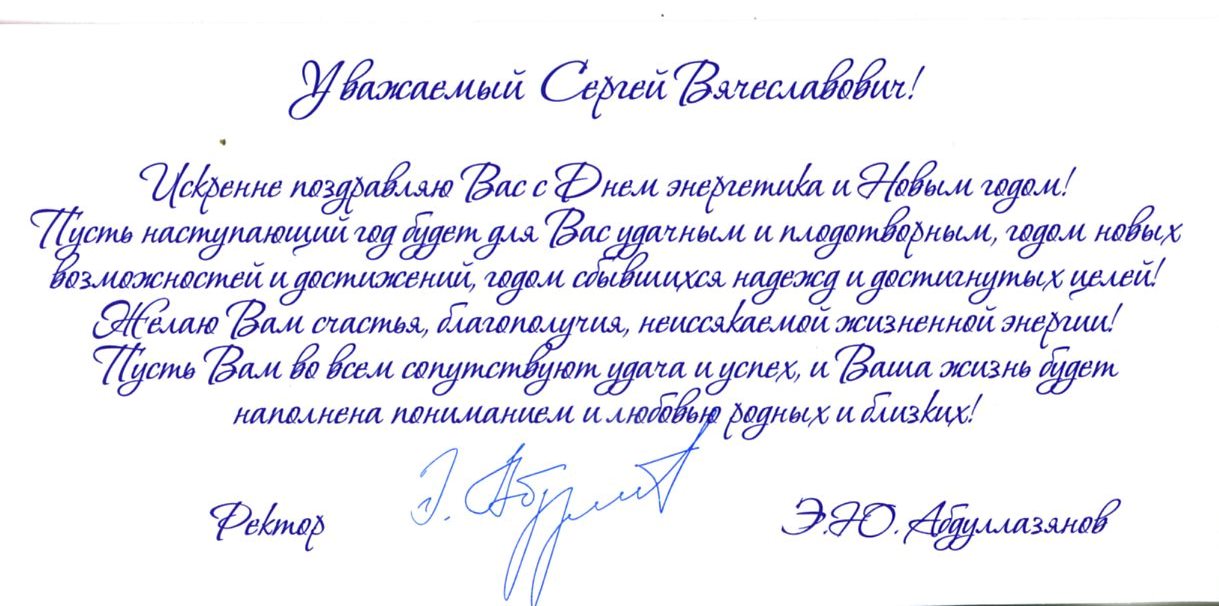 Уважаемый Сергей Вячеславович!
Искренне поздравляю Вас с Днем энергетика и Новым годом!
Пусть наступающий год будет для Вас удачным и плодотворным, годом новых
возможностей и достижений, годом сбывшихся надежд и достигнутых целей!
Желаю Вам счастья, благополучия, неиссякаемой жизненной энергии!
Пусть Вам во всем сопутствуют удача и успех, и Ваша жизнь будет
наполнена пониманием и любовью родных и близких!
Ректор Э.Ю. Абдуллазянов